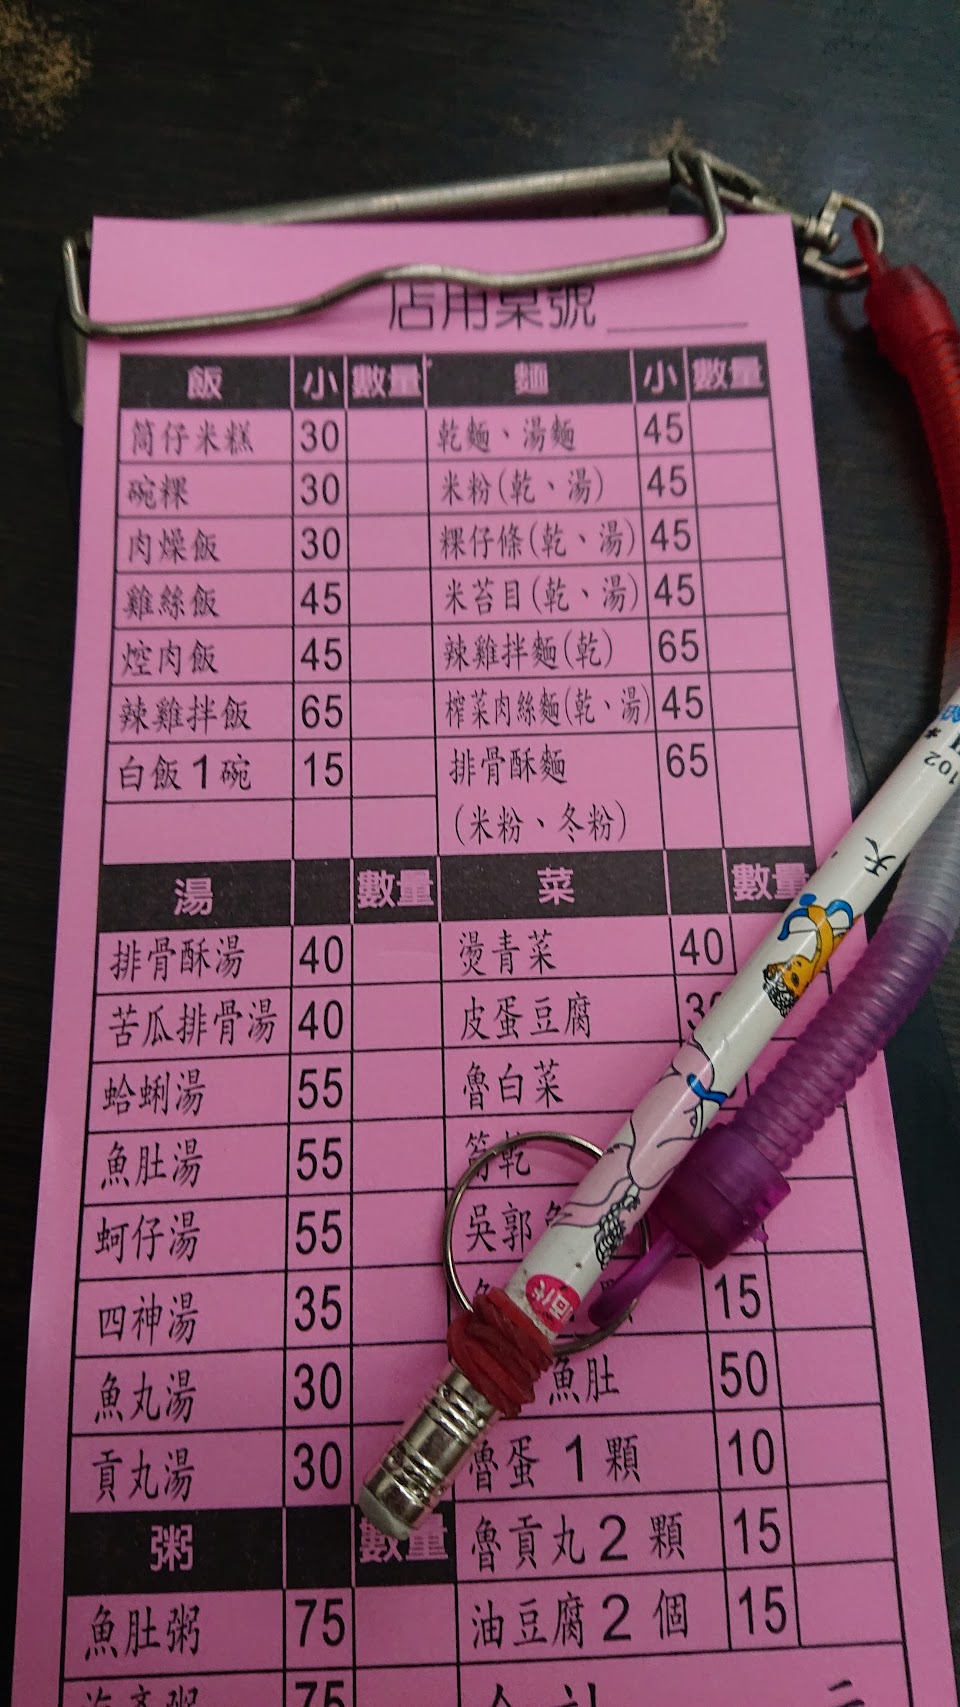 店用桌號
飯 小 數量 麵 小 數量
筒仔米糕 30 乾麵、湯麵 45
碗粿 30 米粉(乾、湯) 45
肉燥飯 30 粿仔條(乾、湯) 45
雞絲飯 45 米苔目(乾、湯) 45
焢肉飯 45 辣雞拌麵(乾) 65
辣雞拌飯 65 榨菜肉絲麵(乾、湯) 45
白飯1碗 15 排骨酥麵 65
(米粉、冬粉)
湯 數量 菜 數量
排骨酥湯 40 燙青菜 40
苦瓜排骨湯 40 皮蛋豆腐
蛤蜊湯 55 魯白菜
魚肚湯 55 筍乾
蚵仔湯 55 吳郭
四神湯 35 15
魚丸湯 30 魚肚 50
貢丸湯 30 魯蛋 1 顆 10
粥 數量 魯貢丸 2 顆 15
魚肚粥 75 油豆腐 2 個 15
75
102
天